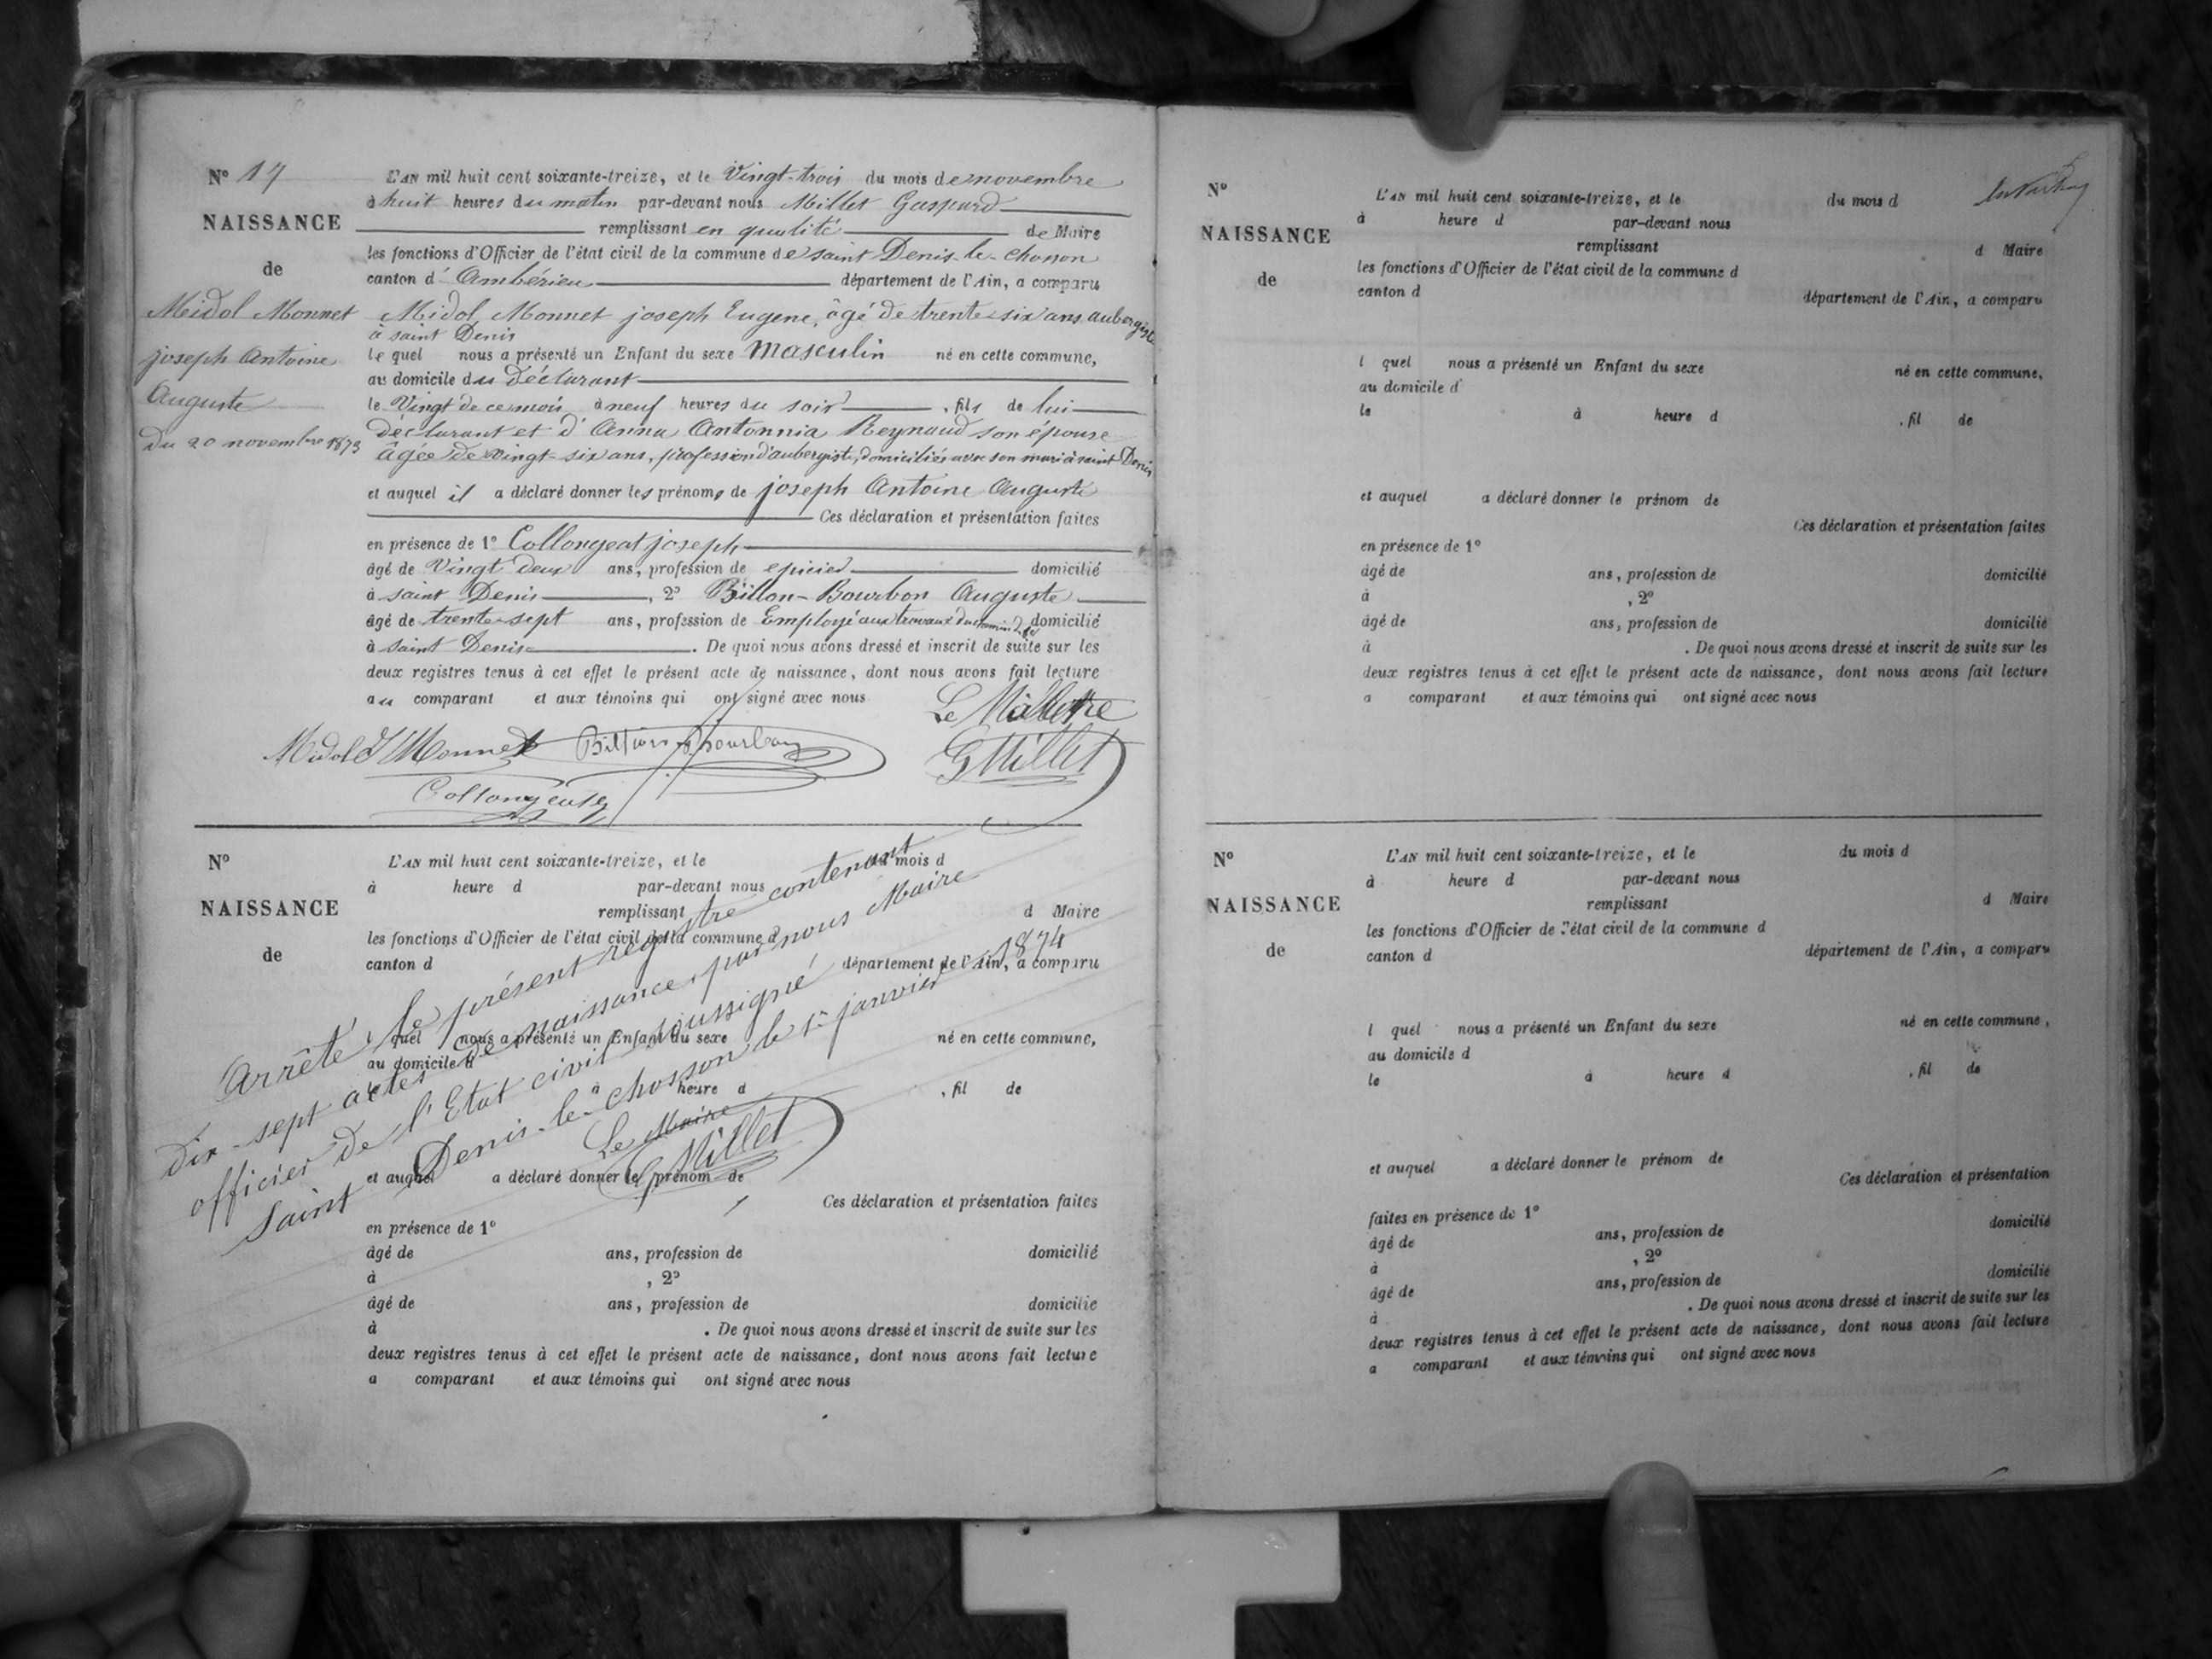 N° 17
NAISSANCE
de
Midol Monnet
joseph Antoine
Auguste
du 20 novembre 1873
L'AN mil huit cent soixante-treize, et le Vingt-trois du mois de novembre
à huit heures du matin par-devant nous Millet Gaspard
remplissant en qualité de Maire
les fonctions d'Officier de l'état civil de la commune de saint Denis-le-Chosson
canton d'Ambérieu département de l'Ain, a comparu
Midol Monnet joseph Eugene, âgé de trente-six ans, aubergiste
à saint Denis
le quel nous a présenté un Enfant du sexe Masculin né en cette commune,
au domicile du déclarant
le Vingt de ce mois à neuf heures du soir , fils de lui
déclarant et d'Anna Antonnia Reynaud son épouse
âgée de vingt-six ans, profession d'aubergiste, domiciliée avec son mari à saint Denis
et auquel il a déclaré donner les prénoms de joseph Antoine Auguste
Ces déclaration et présentation faites
en présence de 1° Collongeat joseph
âgé de Vingt deux ans, profession de epicier domicilié
à saint Denis , 2° Billon-Bourbon Auguste
âgé de trente-sept ans, profession de Employé aux travaux du chemin de fer domicilié
à saint Denis . De quoi nous avons dressé et inscrit de suite sur les
deux registres tenus à cet effet le présent acte de naissance, dont nous avons fait lecture
au comparant et aux témoins qui ont signé avec nous
Le Maire
Midol J Monnet Billion Bourbon G Millet
Collongeat
N°
NAISSANCE
de
L'AN mil huit cent soixante-treize, et le du mois d
à heure d par-devant nous
remplissant d Maire
les fonctions d'Officier de l'état civil de la commune d
canton d département de l'Ain, a comparu
l quel nous a présenté un Enfant du sexe né en cette commune,
au domicile d
le à heure d , fil de
et auquel a déclaré donner le prénom de
Ces déclaration et présentation faites
en présence de 1°
âgé de ans, profession de domicilié
à , 2°
âgé de ans, profession de domicilié
à . De quoi nous avons dressé et inscrit de suite sur les
deux registres tenus à cet effet le présent acte de naissance, dont nous avons fait lecture
a comparant et aux témoins qui ont signé avec nous
Arrêté le présent registre contenant
dix-sept actes de naissance, par nous Maire
officier de l'Etat civil soussigné
Saint Denis-le-Chosson le 1er janvier 1874
Le Maire
G Millet
N°
NAISSANCE
de
L'AN mil huit cent soixante-treize, et le du mois d
à heure d par-devant nous
remplissant d Maire
les fonctions d'Officier de l'état civil de la commune d
canton d département de l'Ain, a comparu
l quel nous a présenté un Enfant du sexe né en cette commune,
au domicile d
le à heure d , fil de
et auquel a déclaré donner le prénom de
Ces déclaration et présentation faites
en présence de 1°
âgé de ans, profession de domicilié
à , 2°
âgé de ans, profession de domicilié
à . De quoi nous avons dressé et inscrit de suite sur les
deux registres tenus à cet effet le présent acte de naissance, dont nous avons fait lecture
a comparant et aux témoins qui ont signé avec nous
N°
NAISSANCE
de
L'AN mil huit cent soixante-treize, et le du mois d
à heure d par-devant nous
remplissant d Maire
les fonctions d'Officier de l'état civil de la commune d
canton d département de l'Ain, a comparu
l quel nous a présenté un Enfant du sexe né en cette commune,
au domicile d
le à heure d , fil de
et auquel a déclaré donner le prénom de
Ces déclaration et présentation
faites en présence de 1° domicilié
âgé de ans, profession de
à , 2° domicilié
âgé de ans, profession de
à . De quoi nous avons dressé et inscrit de suite sur les
deux registres tenus à cet effet le présent acte de naissance, dont nous avons fait lecture
a comparant et aux témoins qui ont signé avec nous